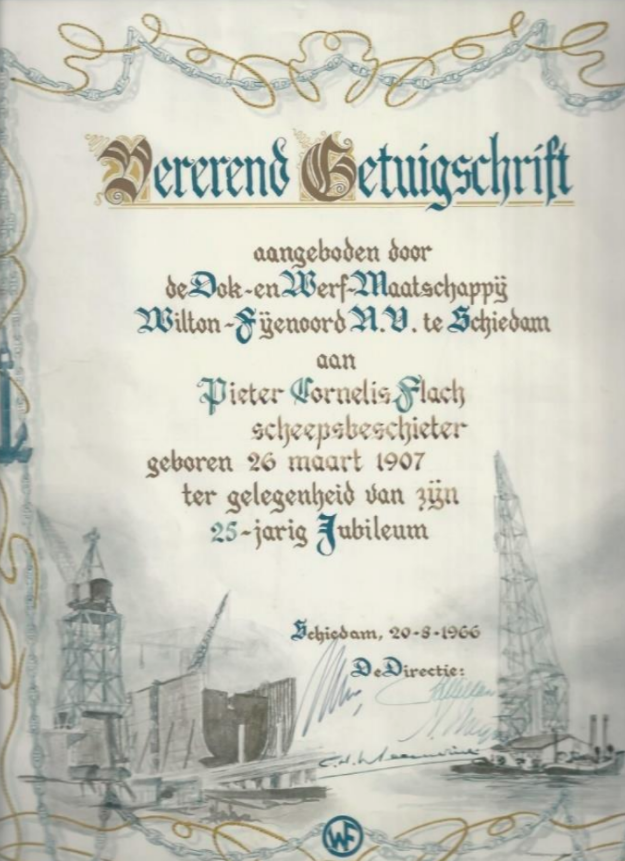 Vererend Getuigschrift
aangeboden door
de Dok-en Werf-Maatschappij
Wilton-Fijenoord N.V. te Schiedam
aan
Pieter Cornelis Flach
scheepsbeschieter
geboren 26 maart 1907
ter gelegenheid van zijn
25-jarig Jubileum
Schiedam, 20-8-1966
De Directie:
WF